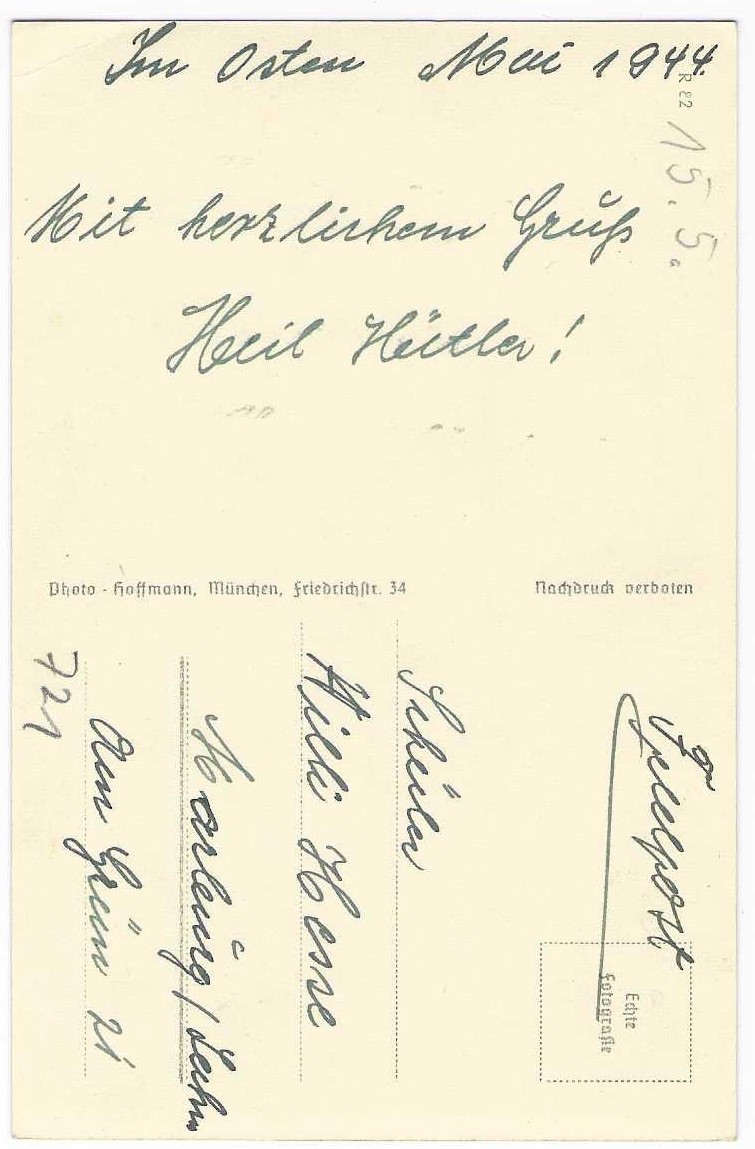 Im Osten Mai 1944.
R 82
15. 5.
Mit herzlichem Gruß
Heil Hitler!
Photo-Hoffmann, München, Friedrichstr. 34
Nachdruck verboten
Feldpost
Echte
Fotografie
Schüler
Willi Hesse
Marburg/Lahn
Am Grün 21
721